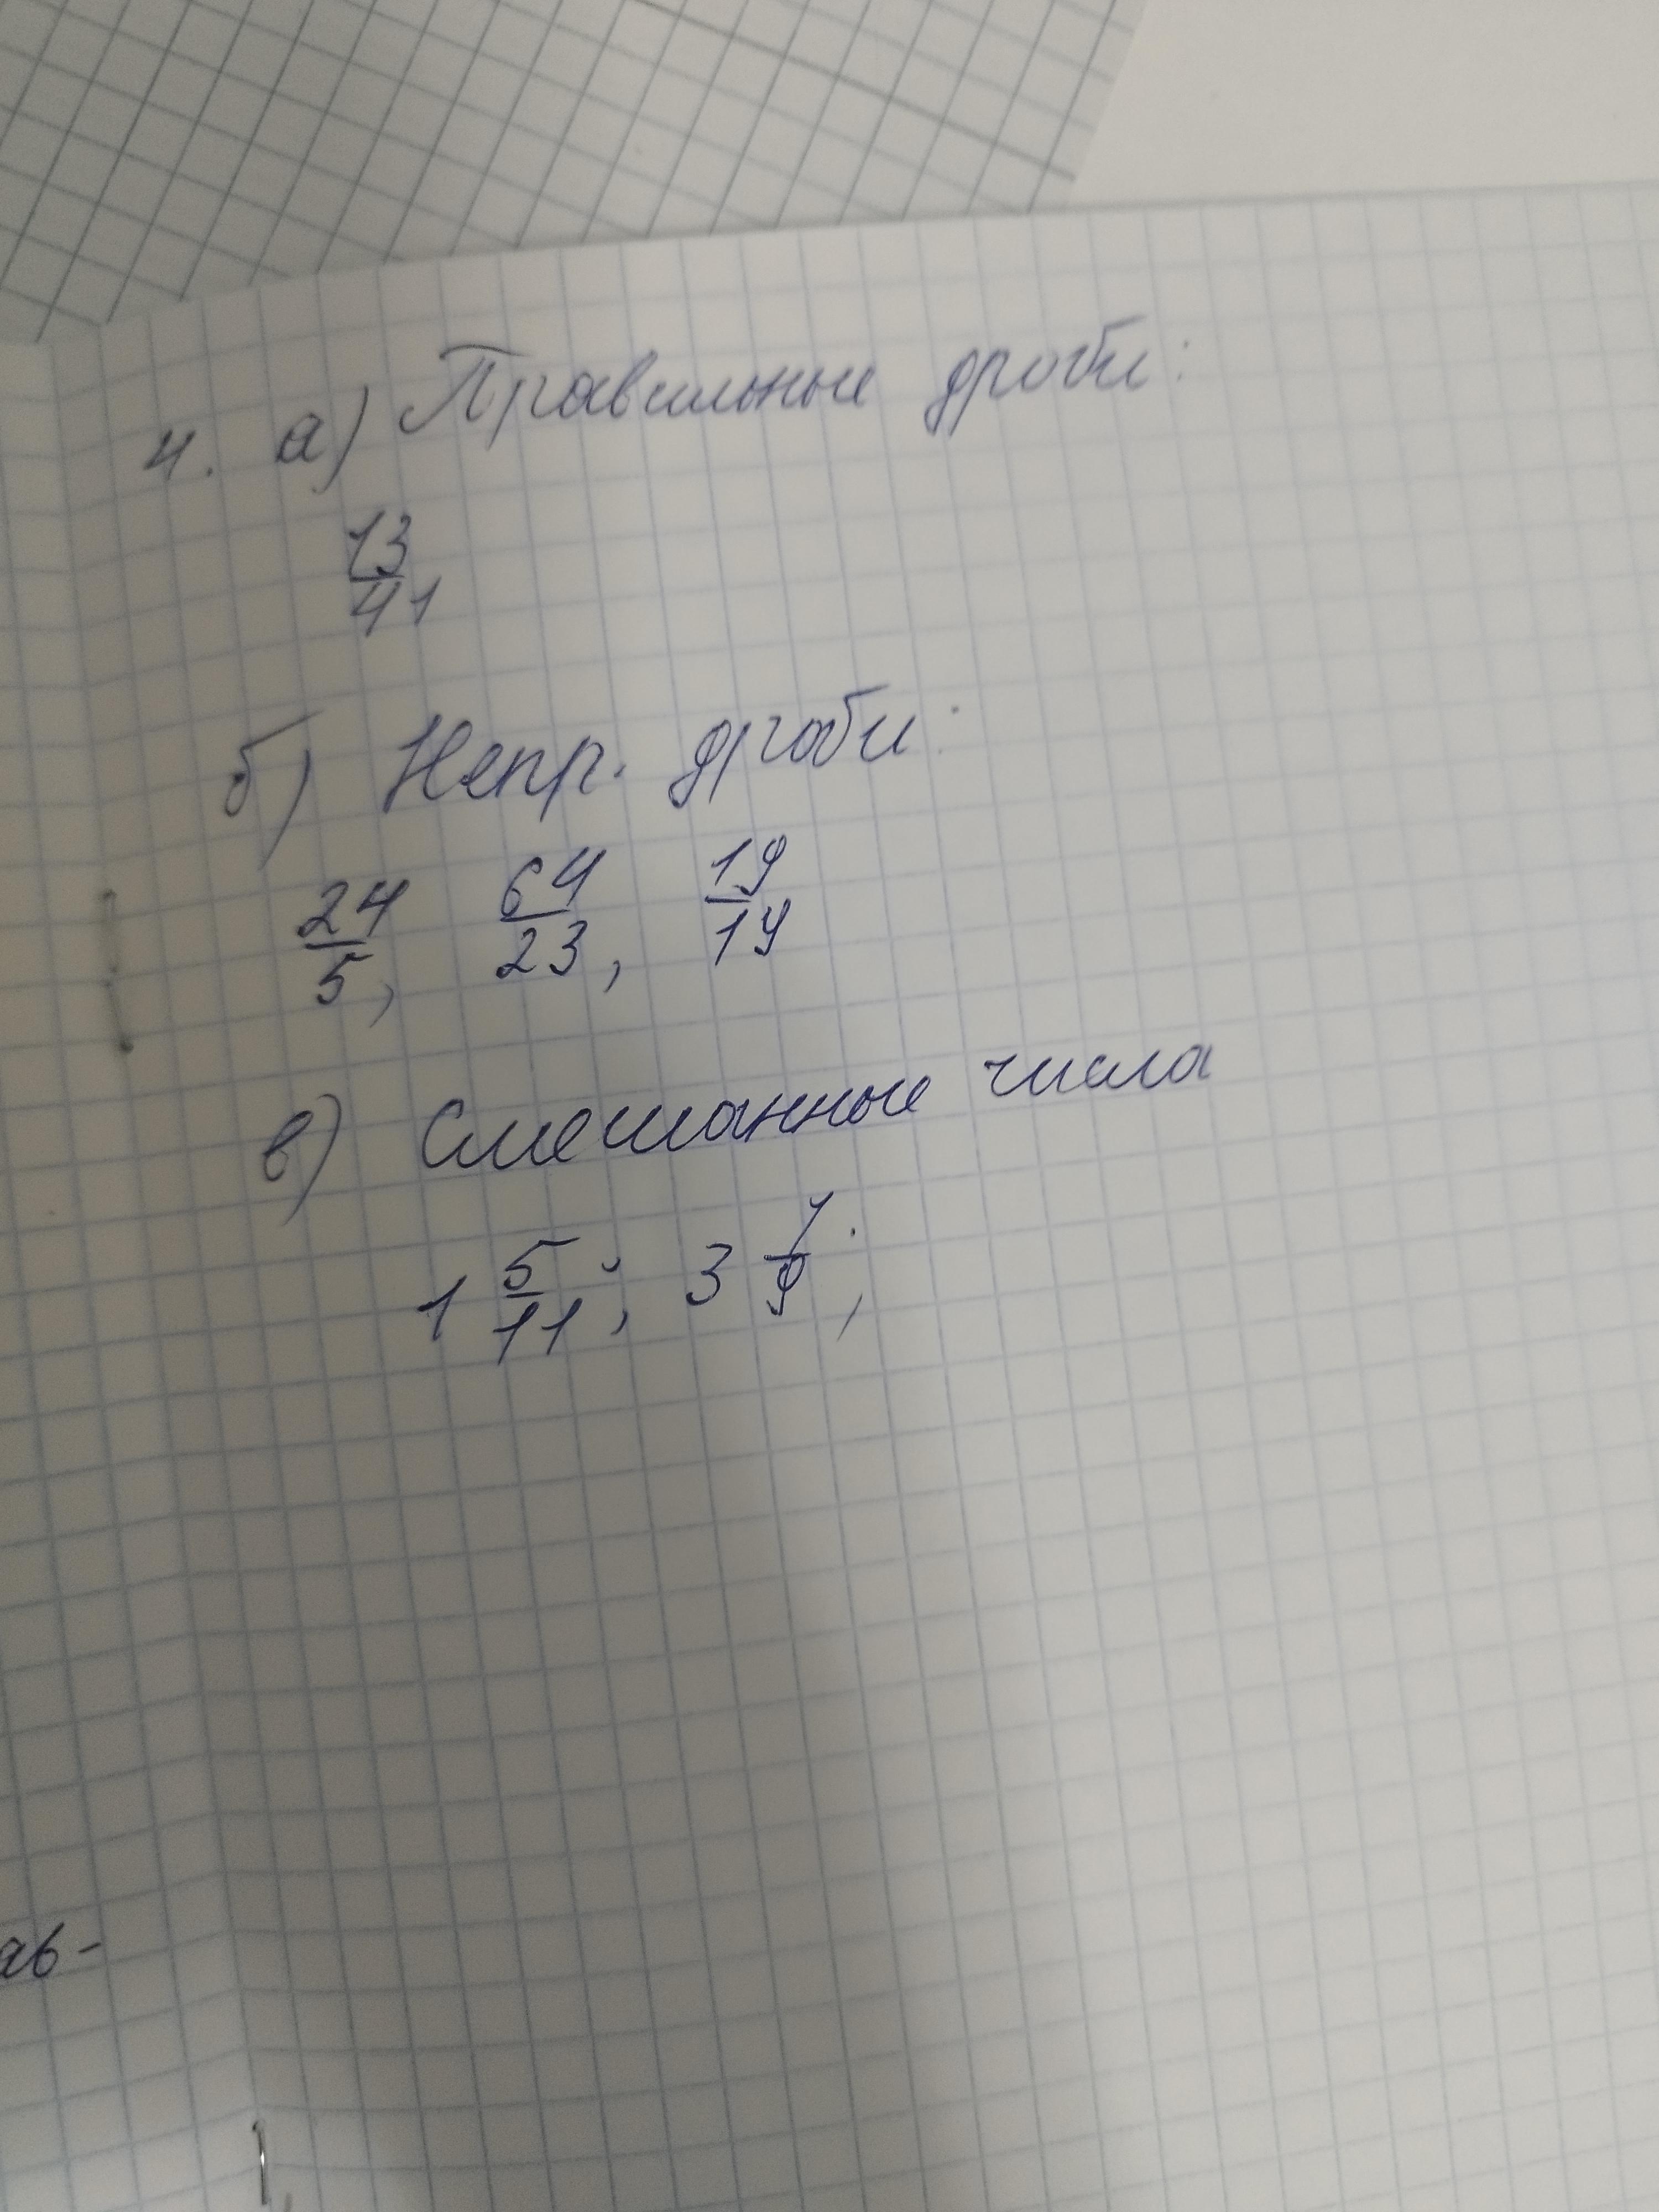 4. а) Правильные дроби:
13/41
б) Непр. дроби:
24/5, 64/23, 19/14
в) Смешанные числа
1 5/11; 3 7/9;
ав-